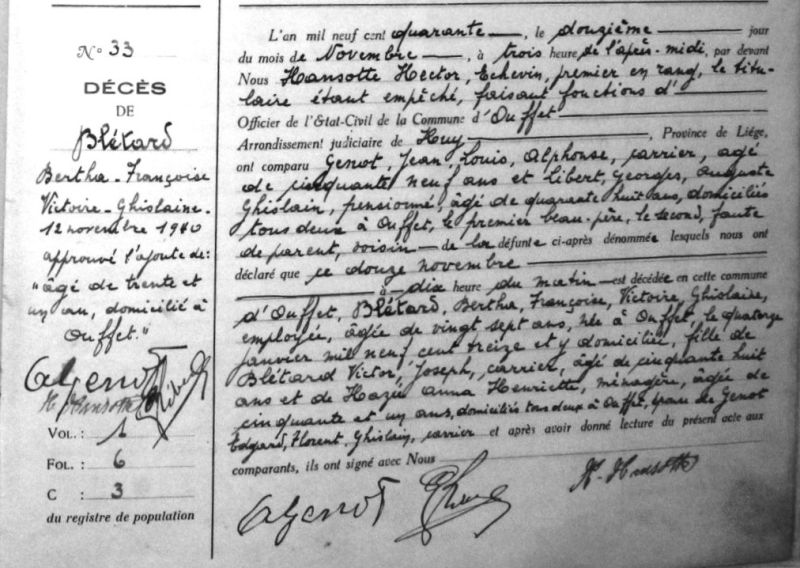 N° 33
DÉCÈS
DE
Blétard
Bertha-Françoise
Victoire-Ghislaine-
12 novembre 1940
approuvé l'ajoute de:
"âgé de trente et
un an, domicilié à
Ouffet."
AGenot
H. Hansotte
VOL.: 1
FOL.: 6
C : 3
du registre de population
L'an mil neuf cent quarante —, le douzième — jour
du mois de Novembre —, à trois heure de l'après-midi, par devant
Nous Hansotte Hector, Echevin, premier en rang, le titu-
laire étant empêché, faisant fonctions d'—
Officier de l'Etat-Civil de la Commune d'Ouffet —
Arrondissement judiciaire de Huy —, Province de Liége,
ont comparu Genot, Jean, Louis, Alphonse, carrier, âgé
de cinquante neuf ans et Libert, Georges, Auguste
Ghislain, pensionné, âgé de quarante huit ans, domiciliés
tous deux à Ouffet, le premier beau-père, le second, faute
de parent, voisin — de la défunte ci-après dénommée lesquels nous ont
déclaré que ce douze novembre —
— à — dix heure du matin — est décédée en cette commune
d'Ouffet, Blétard, Bertha, Françoise, Victoire, Ghislaine,
employée, âgée de vingt sept ans, née à Ouffet, le quatorze
janvier mil neuf cent treize et y domiciliée, fille de
Blétard Victor, Joseph, carrier, âgé de cinquante huit
ans et de Hazée Anna Henriette, ménagère, âgée de
cinquante et un ans, domiciliés tous deux à Ouffet, épouse de Genot
Edgard, Florent, Ghislain, carrier et après avoir donné lecture du présent acte aux
comparants, ils ont signé avec Nous
AGenot
H. Hansotte